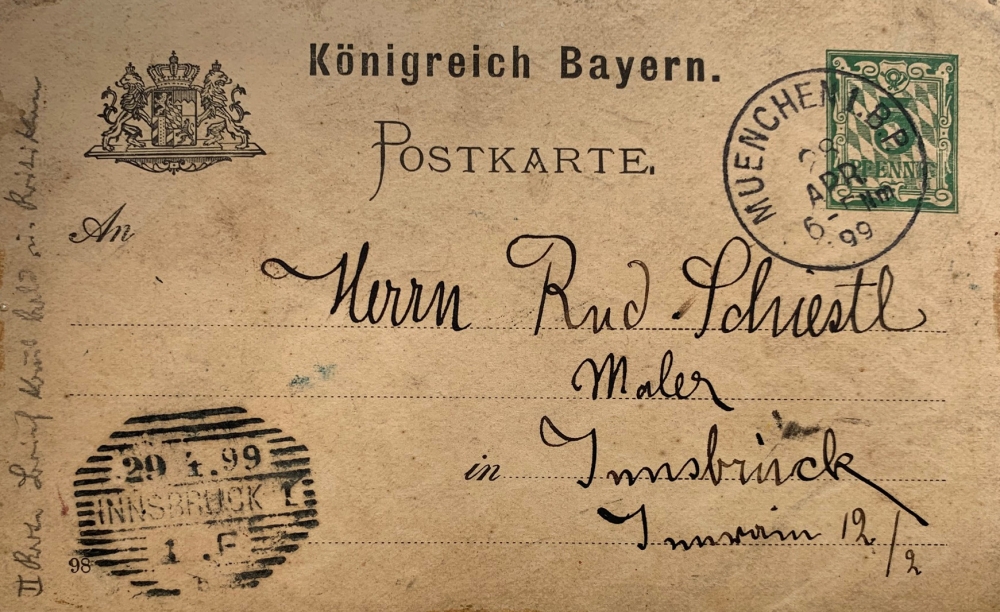 Königreich Bayern.
POSTKARTE.
MUENCHEN 1. B.P.
28
APR
6- Nm
99
PFENNIG
An
Herrn Rud. Schiestl
Maler
in Innsbruck
Innrain 12/2
29 4.99
INNSBRUCK 1
1 . F
98
II